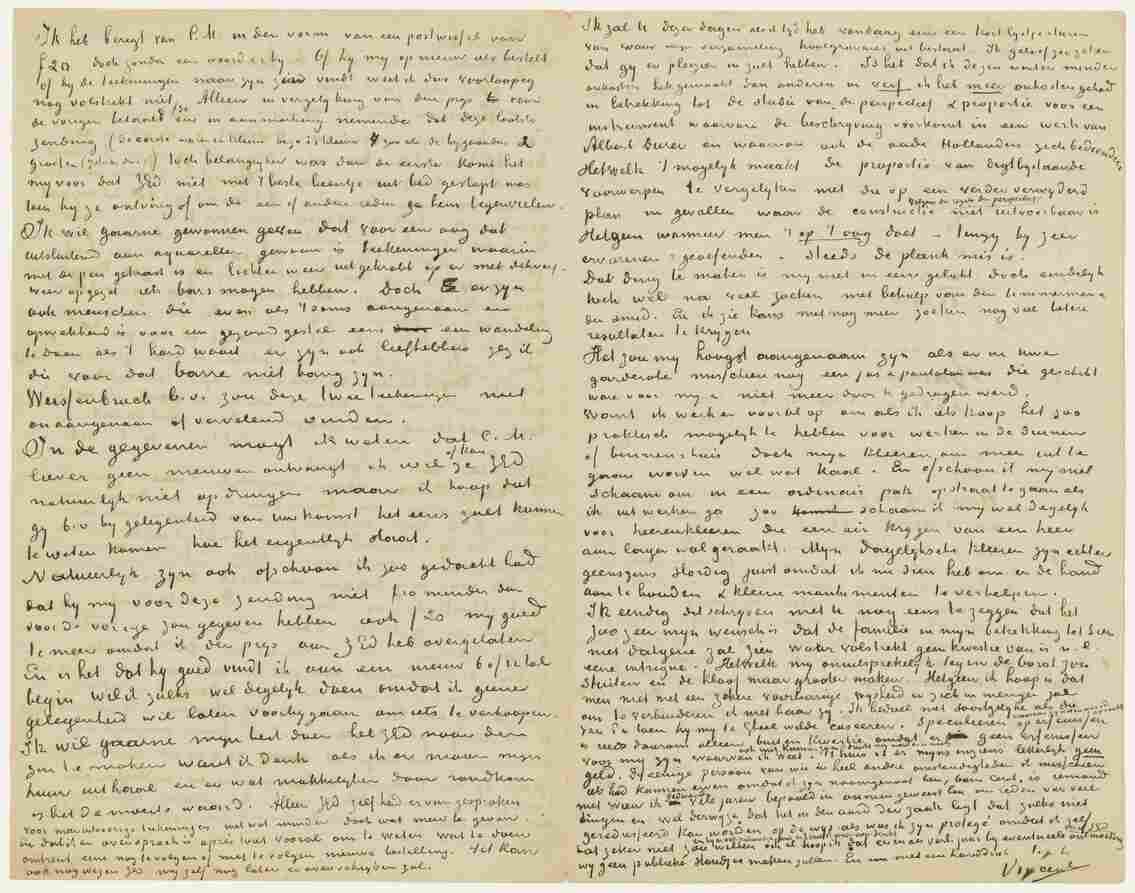 Ik heb berigt van C.M. in den vorm van een postwissel van
f 20 doch zonder een woord er bij. Of hij my op nieuw iets bestelt
of hij de teekeningen naar zijn zin vindt weet ik dus voorloopig
nog volstrekt niet, Alleen in vergelijking van den prijs voor
de vorigen betaald en in aanmerking nemende dat deze laatste
zending (de eerste waren 12 kleine deze is kleine 4 zooals de bijzondere & 2
grooten) toch belangrijker was dan de eerste komt het
my voor dat ZEd niet met 't beste beentje uit bed gestapt was
toen hy ze ontving of om de een of andere reden ze hem tegenvielen.
Ik wil gaarne gewonnen geven dat voor een oog dat
uitsluitend aan aquarellen gewoon is teekeningen waarin
met de pen gekrast is en lichten weer uitgekrabt of er met dekverf
weer opgezet iets bars mogen hebben. Doch er zyn
ook menschen die even als 't soms aangenaam en
opwekkend is voor een gezond gestel eens een wandeling
te doen als 't hard waait er zyn ook liefhebbers zeg ik
die voor dat barre niet bang zyn.
Weissenbruch b.v. zou deze twee teekeningen niet
onaangenaam of vervelend vinden.
In de gegevenen mogt ik weten dat C.M.
liever geen nieuwen ontvangt ik wil of kan ze ZEd
natuurlyk niet opdringen maar ik hoop dat
gy b.v. by gelegenheid van uw komst het eens zult kunnen
te weten komen hoe het eigentlyk staat.
Natuurlyk zyn ook ofschoon ik zoo gedacht had
dat hy my voor deze zending niet f 10 minder dan
voor de vorige zou gegeven hebben ook f 20 my goed
te meer omdat ik den prys aan ZEd heb overgelaten
En is het dat hy goed vindt ik aan een nieuw 6 of 12 tal
begin wil ik zulks wel degelyk doen omdat ik geene
gelegenheid wil laten voorbygaan om iets te verkoopen.
Ik wil gaarne myn best doen het ZEd naar den
zin te maken want ik denk als ik er maar myn
huur uithaal en er wat makkelyken door rondkom
is het de moeite waard. Alleen ZEd zelf had er van gesproken
voor meer uitvoerige teekeningen niet wat minder doch wat meer te geven.
omtrent eene nog te volgen of niet te volgen nieuwe bestelling. Het kan
ook nog wezen ZEd my zelf nog later er over schryven zal.
Ik zal U dezer dagen als ik tyd heb vandaag eens een kort lystje sturen
van waar myn verzameling houtgravures uit bestaat. Ik geloof zeker
dat gy er pleizier in zult hebben. Is het dat ik dezen winter minder
onkosten heb gemaakt dan anderen in verf ik heb meer onkosten gehad
in betrekking tot de studie van de perspectief & proportie voor een
instrument waarvan de beschryving voorkomt in een werk van
Albert Durer en waarvan ook de oude Hollanders zich bedienden
Hetwelk 't mogelyk maakt de proportie van digtbystaande
voorwerpen te vergelyken met die op een verder verwyderd
plan in gevallen waar de constructie volgens de regels der perspectief niet uitvoerbaar is
Hetgeen wanneer men 't op 't oog doet – tenzy by zeer
ervarenen & geoefenden – steeds de plank mis is.
Dat ding te maken is my niet in eens gelukt doch eindelyk
toch wel na veel zoeken met behulp van den timmerman &
den smid. En ik zie kans met nog meer zoeken nog veel beter
resultaten te krygen
Het zou my hoogst aangenaam zyn als er in uwe
garderobe misschien nog een jas & pantalon was die geschikt
ware voor my & niet meer door U gedragen werd.
Want ik werk er vooral op om als ik iets koop het zoo
praktisch mogelyk te hebben voor werken in de duinen
of binnenshuis doch myn kleeren om mee uit te
gaan worden wel wat kaal. En ofschoon ik my niet
schaam om in een ordinair pak op straat te gaan als
ik uit werken ga zoo schaam ik my wel degelyk
voor heerenkleeren die een air krygen van een heer
aan lager wal geraakt. Myn dagelyksche kleeren zyn echter
geenszins slordig juist omdat ik nu Sien heb om er de hand
aan te houden & kleine mankementen te verhelpen.
Ik eindig dit schryven met U nog eens te zeggen dat het
zoo zeer myn wensch is dat de familie in myn betrekking tot Sien
niet datgene zal zien waar volstrekt geen kwestie van is n.l.
eene intrigue. Hetwelk my onuitsprekelyk tegen de borst zou
stuiten en de kloof maar grooter maken. Hetgeen ik hoop is dat
men niet met een zekere voorbarige wysheid er zich in mengen zal
om te verhinderen ik met haar zy. Ik bedoel met soortgelyke als die
van Pa toen hy my te Gheel wilde casseeren.
geld. De eenige persoon van wie ik heel andere omstandigheden ik misschien
iets had kunnen erven omdat ik zyn naamgenoot ben, oom Cent, is iemand
met wien ik sedert vele jaren bepaald in onmin geweest ben om reden van veel
dingen en wel derwyze dat het in den aard der zaak ligt dat zulks niet
geredresseerd kan worden op de wys als was ik zyn protegé omdat ik zelf
wy geen publieke standjes maken zullen. En nu met een handdruk t. à t.
Vincent